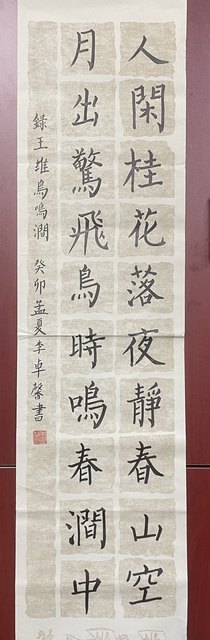 人閑桂花落夜靜春山空
月出驚飛鳥時鳴春澗中
錄王維鳥鳴澗 癸卯孟夏李卓馨書